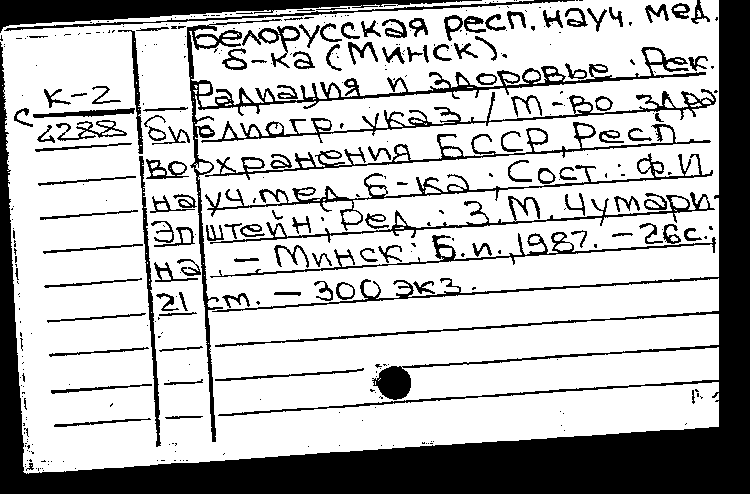 Белорусская респ. науч. мед.
б-ка (Минск).
Радиация и здоровье : Рек.
К-2
с 4288
библиогр. указ. / М-во здра
воохранения БССР, Респ.
науч. мед. б-ка ; Сост.: Ф.И.
Эпштейн; Ред.: З.М. Чумари-
на. – Минск : Б.и., 1987. – 26с.;
21 см. – 300 экз.